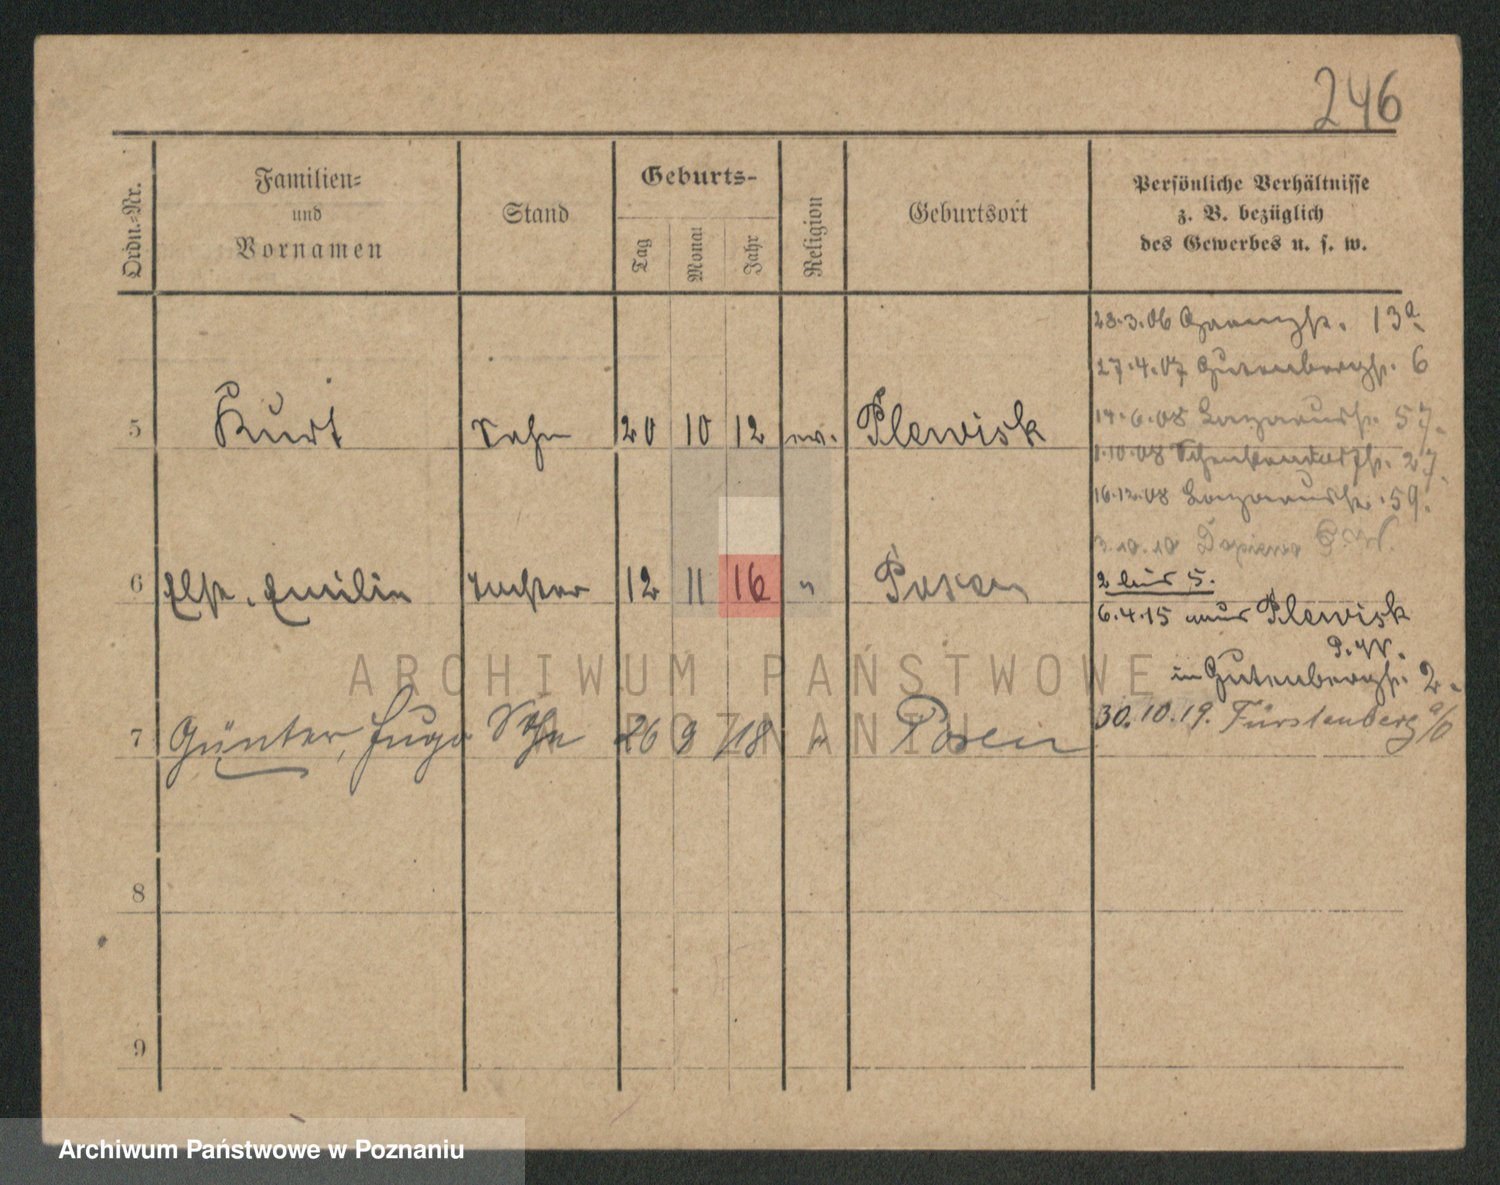 246
Ordn.-Nr.
Familien-
und
Vornamen
Stand
Geburts-
Tag
Monat
Jahr
Religion
Geburtsort
Persönliche Verhältnisse
z. B. bezüglich
des Gewerbes u. s. w.
28.3.06 13a
27.4.07 Gutenbergstr. 6
14.6.08 Lazarusstr. 57.
5 Kurt Sohn 20 10 12 ev. Plewisk
1.10.08 27.
16.12.08 Lazarusstr. 59.
3.10.10
2 bis 5.
6 Else, Emilie Tochter 12 11 16 " Posen
6.4.15 aus Plewisk
P.W.
in Gutenbergstr. 2.
7 Günter, Hugo Sohn 26 9 18 " Posen
30.10.19. Fürstenberg a/O
8
9
ARCHIWUM PAŃSTWOWE
W POZNANIU
Archiwum Państwowe w Poznaniu